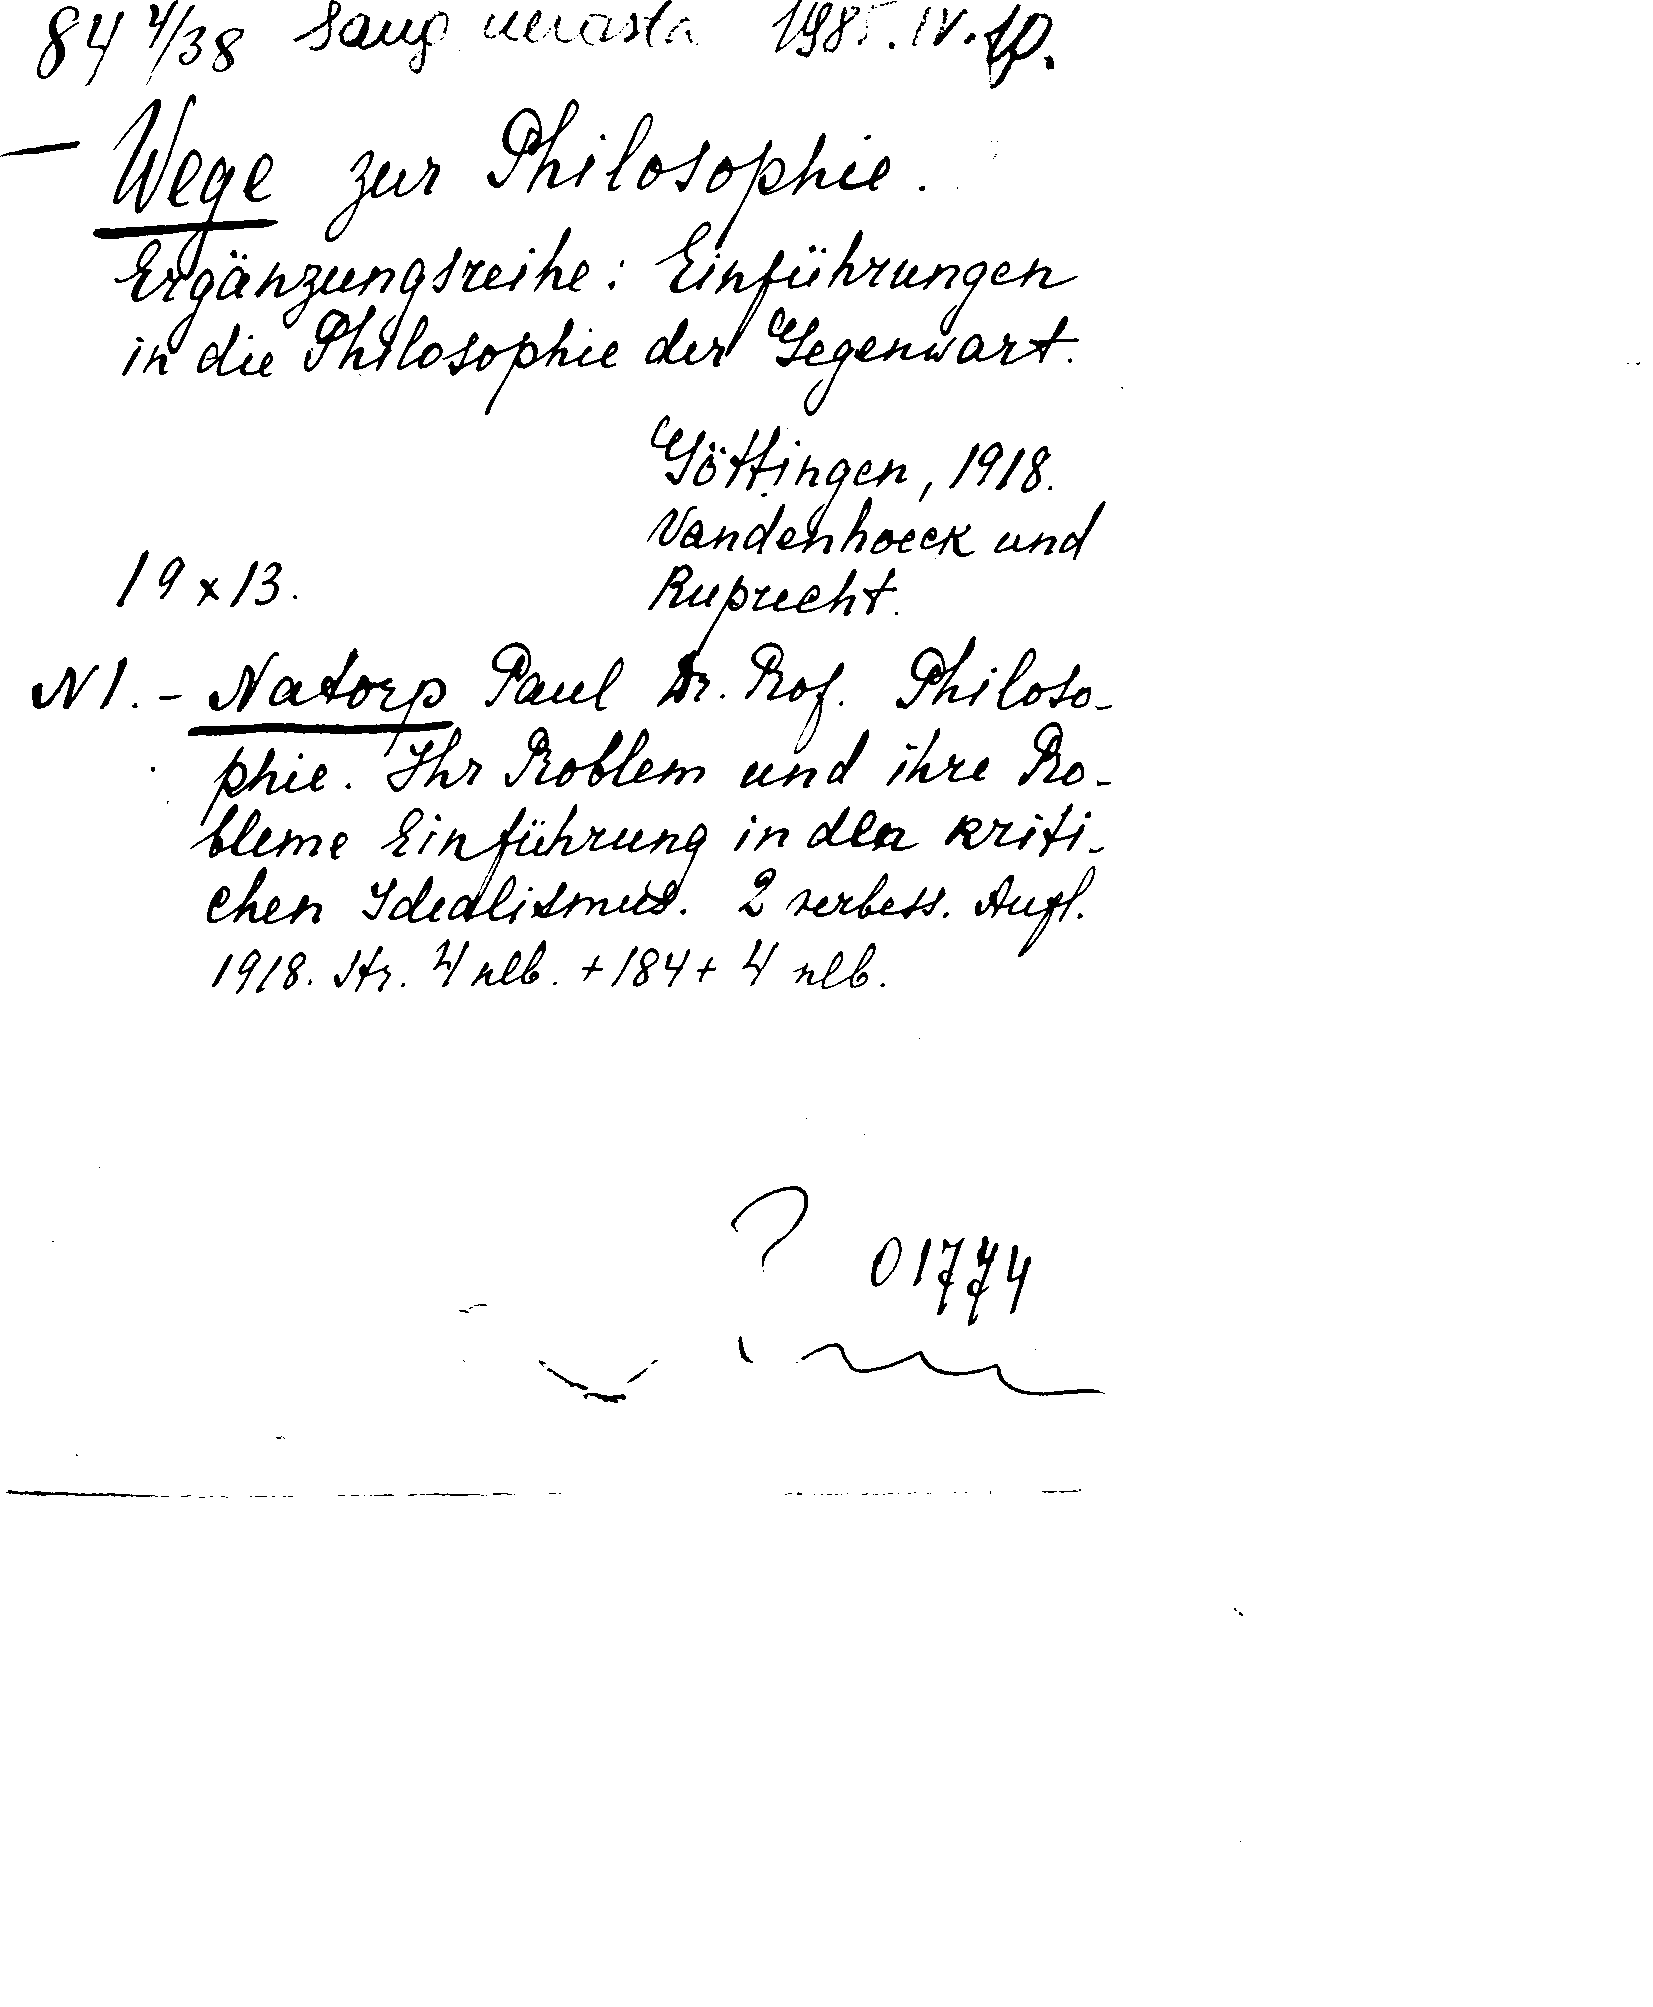 84 4/38 Saug nerasta 1985.IV.10.
— Wege zur Philosophie.
Ergänzungsreihe: Einführungen
in die Philosophie der Gegenwart.
Göttingen, 1918.
Vandenhoeck und
19 x 13. Ruprecht.
N 1. - Natorp Paul Dr. Prof. Philoso-
phie. Ihr Problem und ihre Pro-
bleme Einführung in den kriti-
chen Idealismus. 2 verbess. Aufl.
1918. Str. 4 nlb. + 184 + 4 nlb.
01774